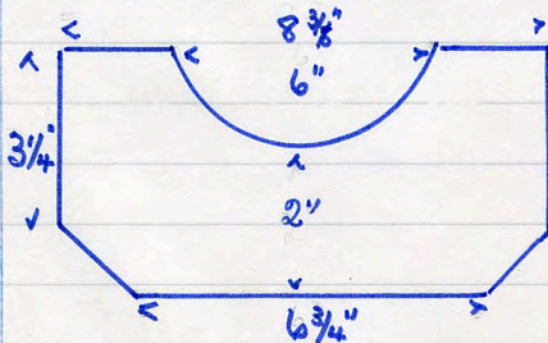 8 3/8"
6"
3 1/4"
2"
6 3/4"